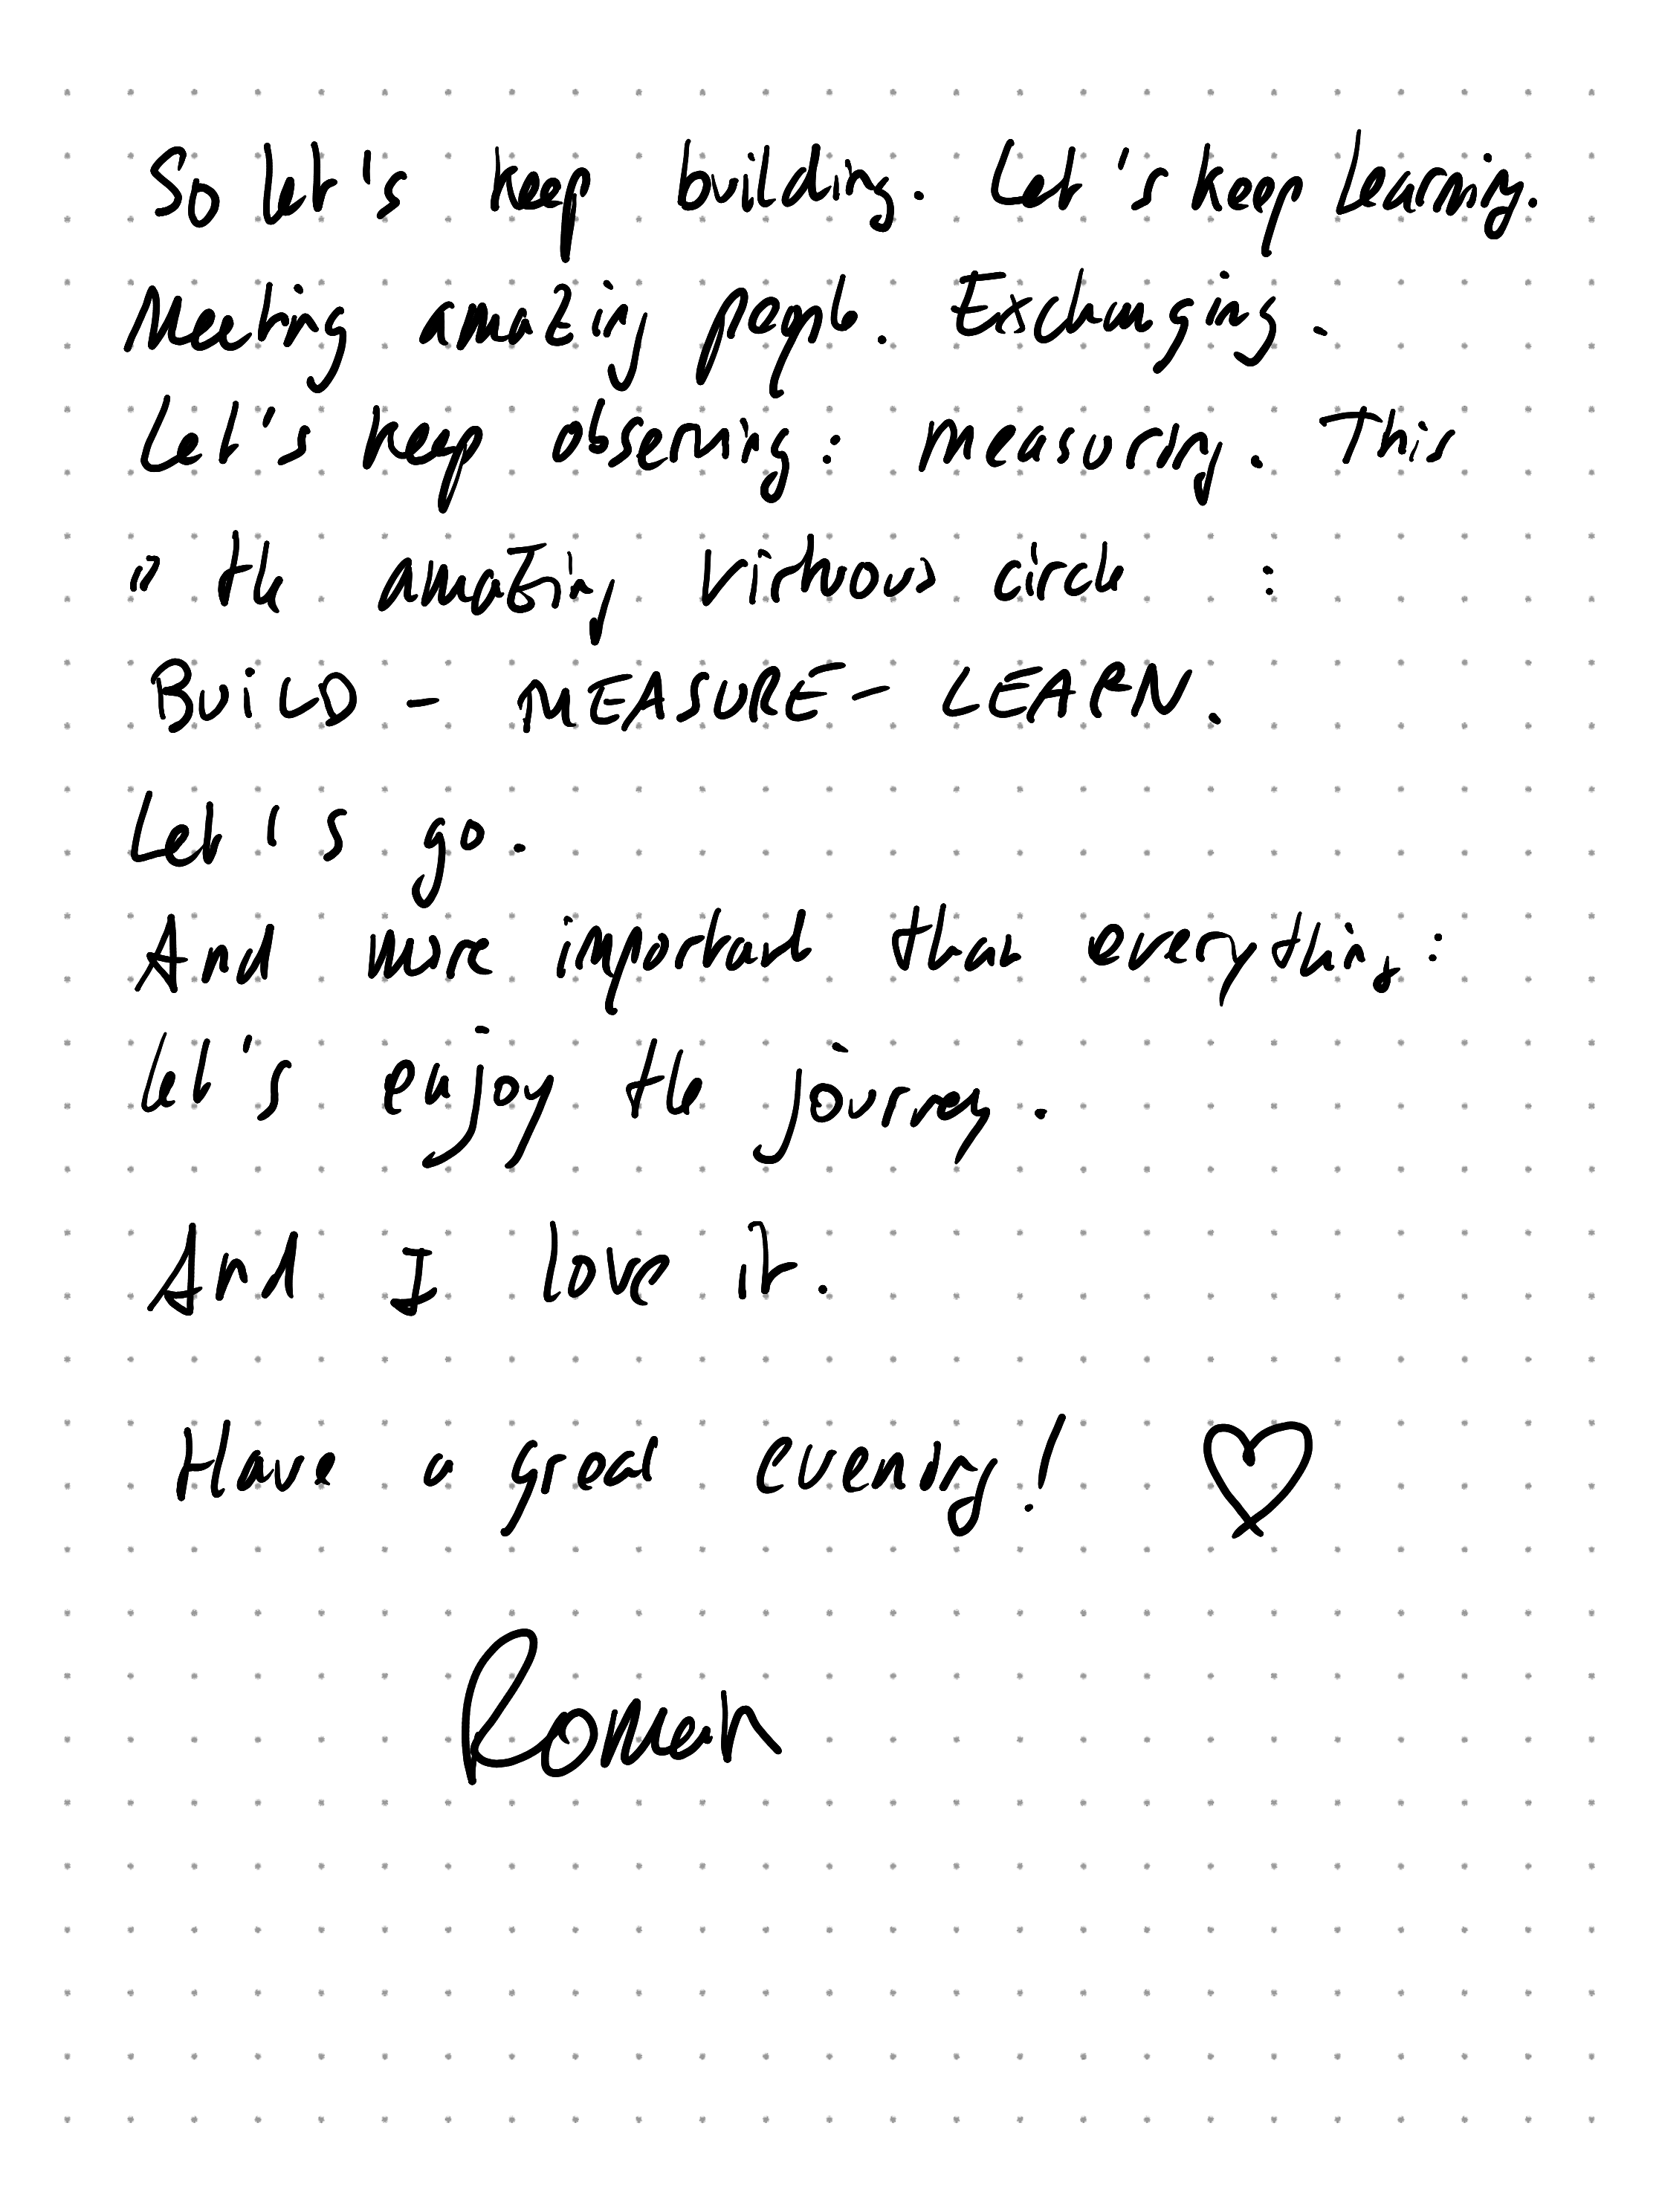 So let's keep building. Let's keep learning.
Meeting amazing people. Exchanging.
Let's keep observing: measuring. This
is the amazing virtuous circle :
BUILD - MEASURE - LEARN.
Let's go.
And more important than everything:
let's enjoy the journey.
And I love it.
Have a great evening! ♡
Roman